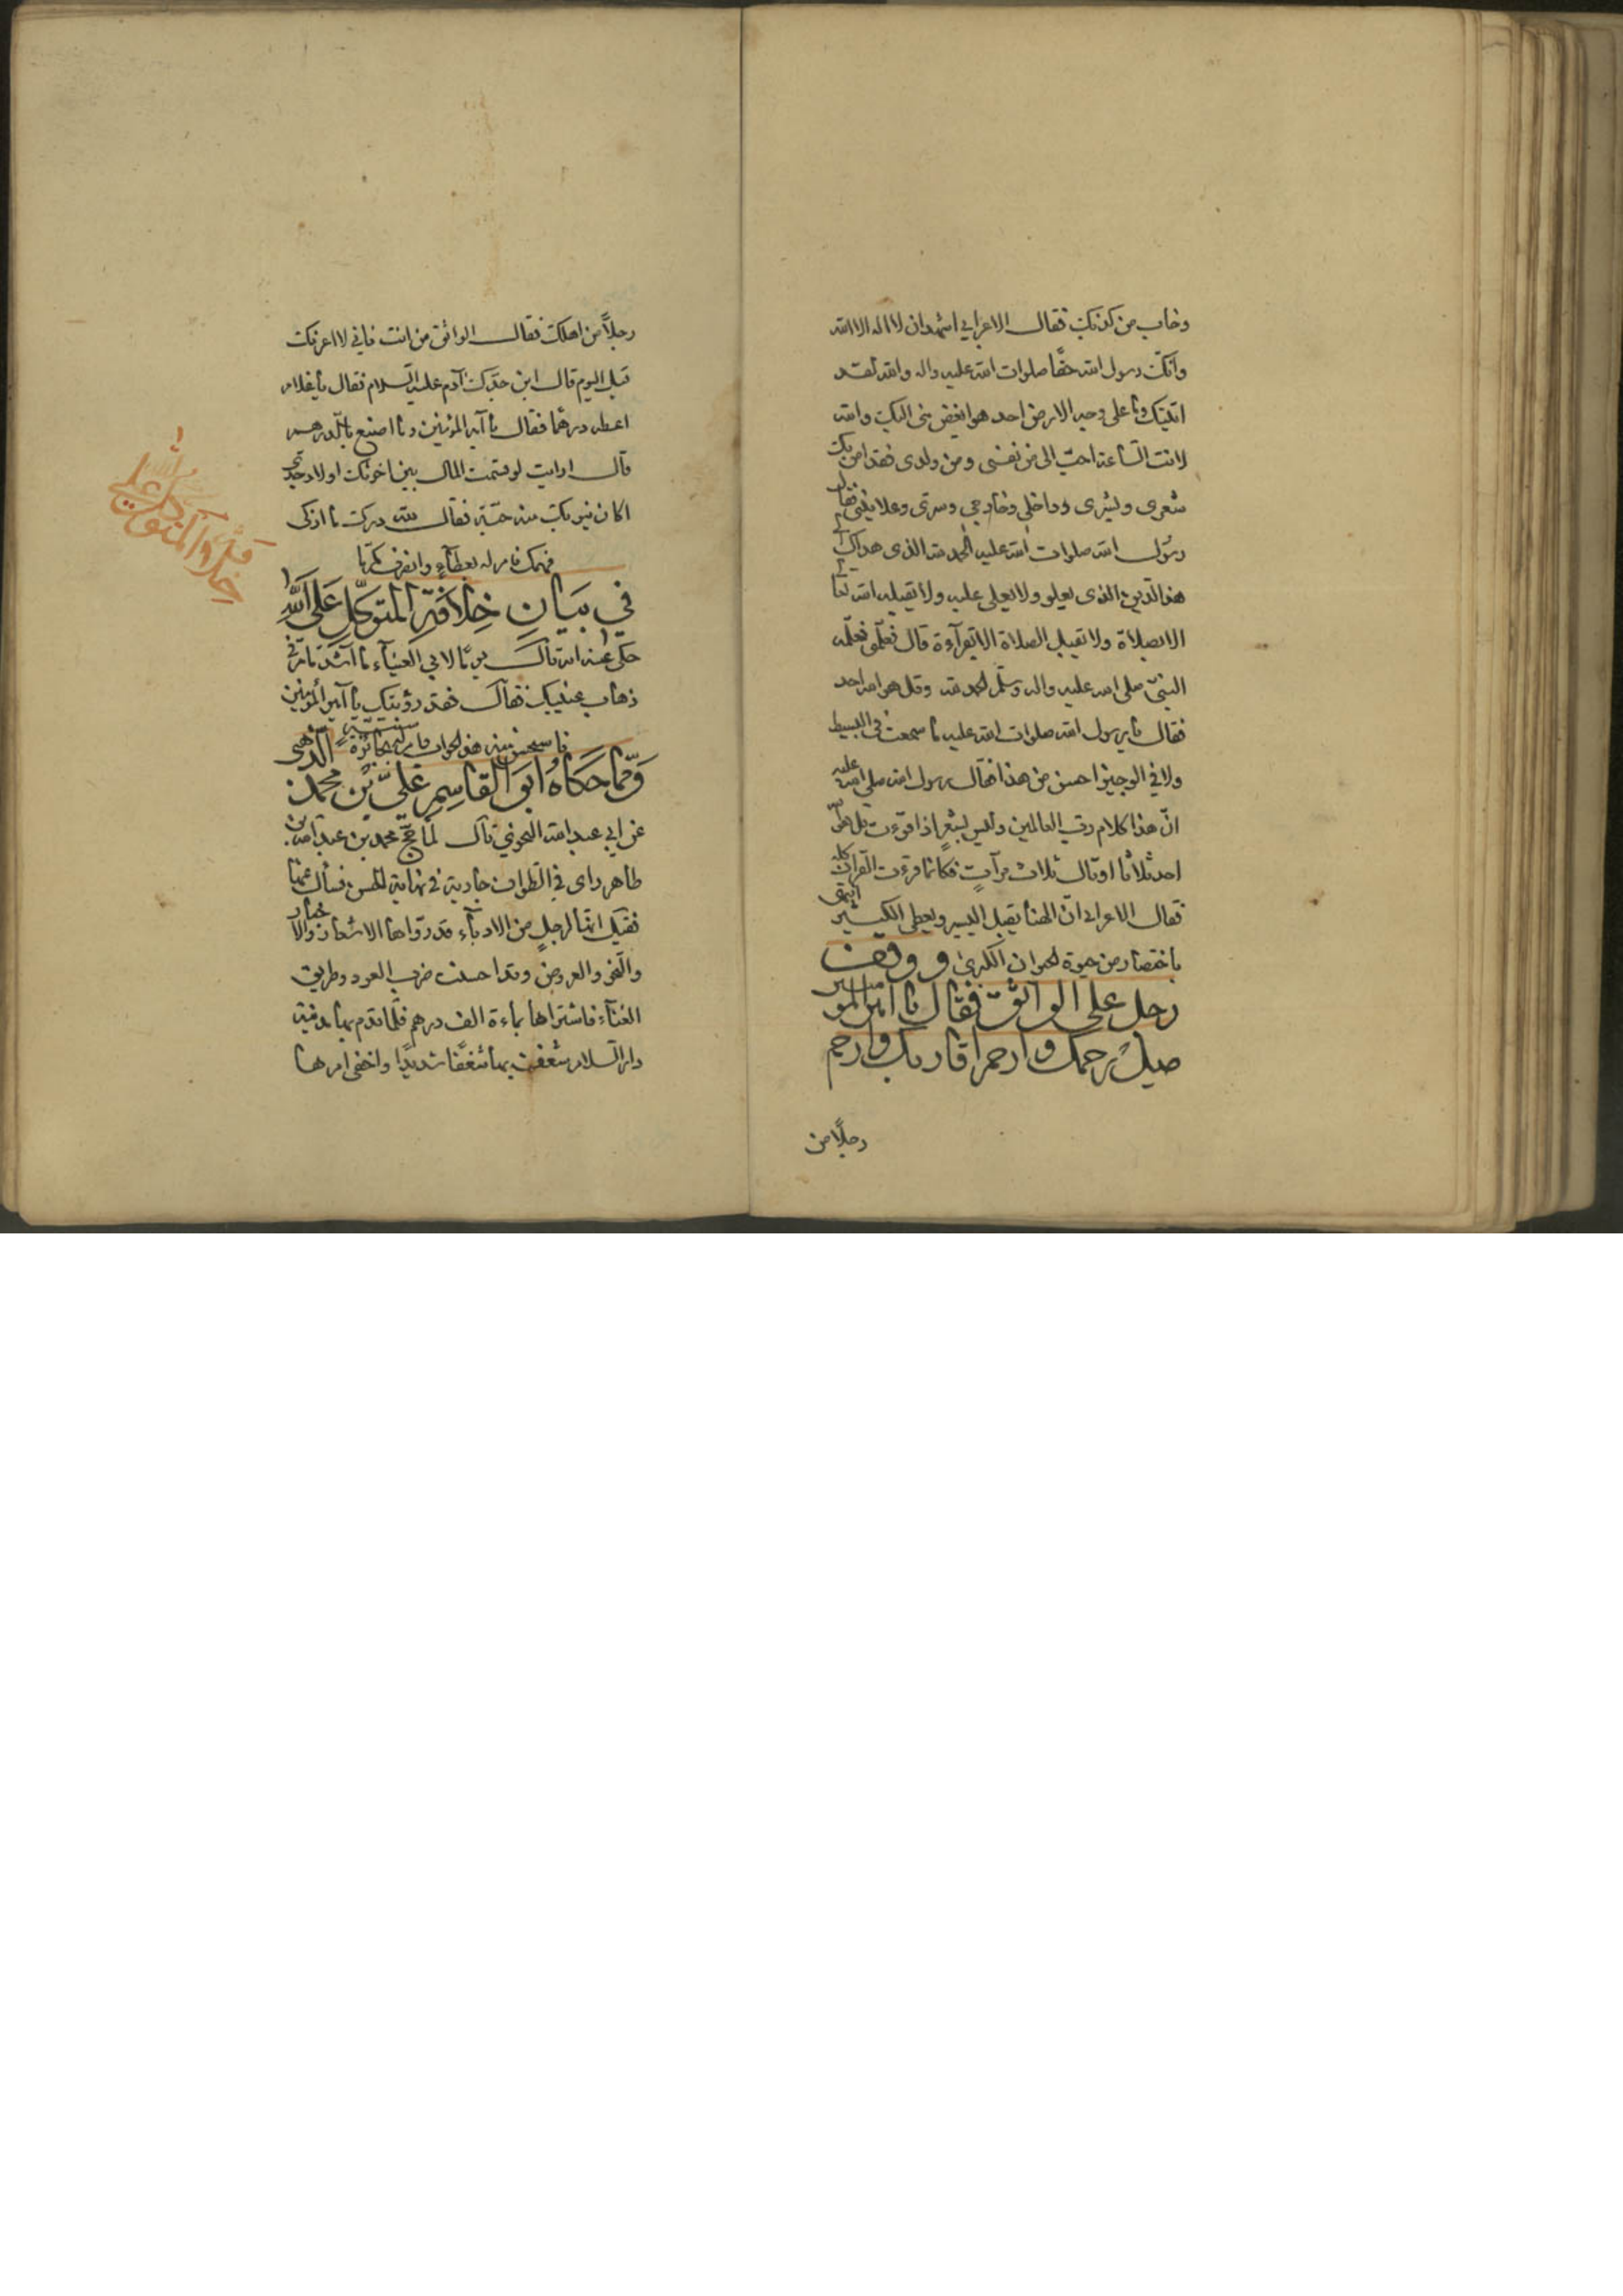 وخاب من كذبك فقال الاعرابي اشهد ان لا اله الا الله
وانّك رسول الله حقّا صلوات الله عليه واله والله لقد
اتيتك وما على وجه الارض احد هو ابغض منى اليك والله
لانت الساعة احبّ الى من نفسى ومن ولدى فقد امن بك
شعرى وبشرى وداخلى وخارجي وسرّى وعلانيتى فقال
رسول الله صلوات الله عليه الحمد لله الذى هداك الى
هذا الدّين الذى يعلو ولا يعلى عليه ولا يقبله الله تعا
الا بصلاة ولا تقبل الصلاة الا بقرآءة قال فعلّمنى فعلّمه
النبىّ صلى الله عليه واله وسلّم الحمد لله وقل هو الله احد
فقال يا رسول الله صلوات الله عليه ما سمعت فى البسيط
ولا في الوجيز احسن من هذا فقال رسول الله صلى الله عليه
انّ هذا كلام ربّ العالمين وليس بشعر اذا قرءت قل هو الله
احد ثلاثا او قال ثلاث مرآت فكانما قرءت القرآن كله
فقال الاعرابى انّ الهنا يقبل اليسير ويعطى الكثير انتهى
باختصار من حيوة الحيوان الكبرى و ووقف
رجل على الواثق فقال يا امير المو منين
صل رحمك وارحم اقاربك وارحم
رجلًا من
رجلًا من اهلك فقال الواثق من انت فاني لا اعرفك
قبل اليوم قال ابن جدّك آدم عليه السّلام فقال يا غلام
اعطه درهما فقال يا آمير المؤمنين وما اصنع بالدّرهم
قال ارايت لو قسمت المال بين اخوتك اولاد جدّي
اكان ينوبك منه حبّة فقال لله درك ما اذكى
فهمك فامر له بعطآء وانصرف مكرّما
في بيان خلافة المتوكّل على الله
حكى عنه انه قال يومًا لابي العيناء ما آشدّ ما مرّ فى
ذهاب عينيك فقال فقد رؤيتك يا آمير المؤمنين
فاستحسن منه هذا الجواب وامر له بجائزة سنيّة الذّهبى
وممّا حكاه ابو القاسم عليّ بن محمد
عن ابي عبد الله النحوي قال لمّا حجّ محمد بن عبد الله بن
طاهر راى في الطّواف جارية في نهاية الحسن فسأل عنها
فقيل انّها لرجل من الادبآء قد روّاها الاشعار والاخبار
والنحو والعروض وقد احسنت ضرب العود وطريق
الغنآء فاشتراها بماءة الف درهم فلمّا قدم بها مدينة
دار السّلام شغف بها شغفًا شديدًا واخفى امرها
خلافة المتوكل على
الله